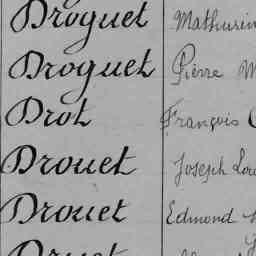 Droguet Mathurin
Droguet Pierre M
Drot François
Drouet Joseph Lou
Drouet Edmond
Druet